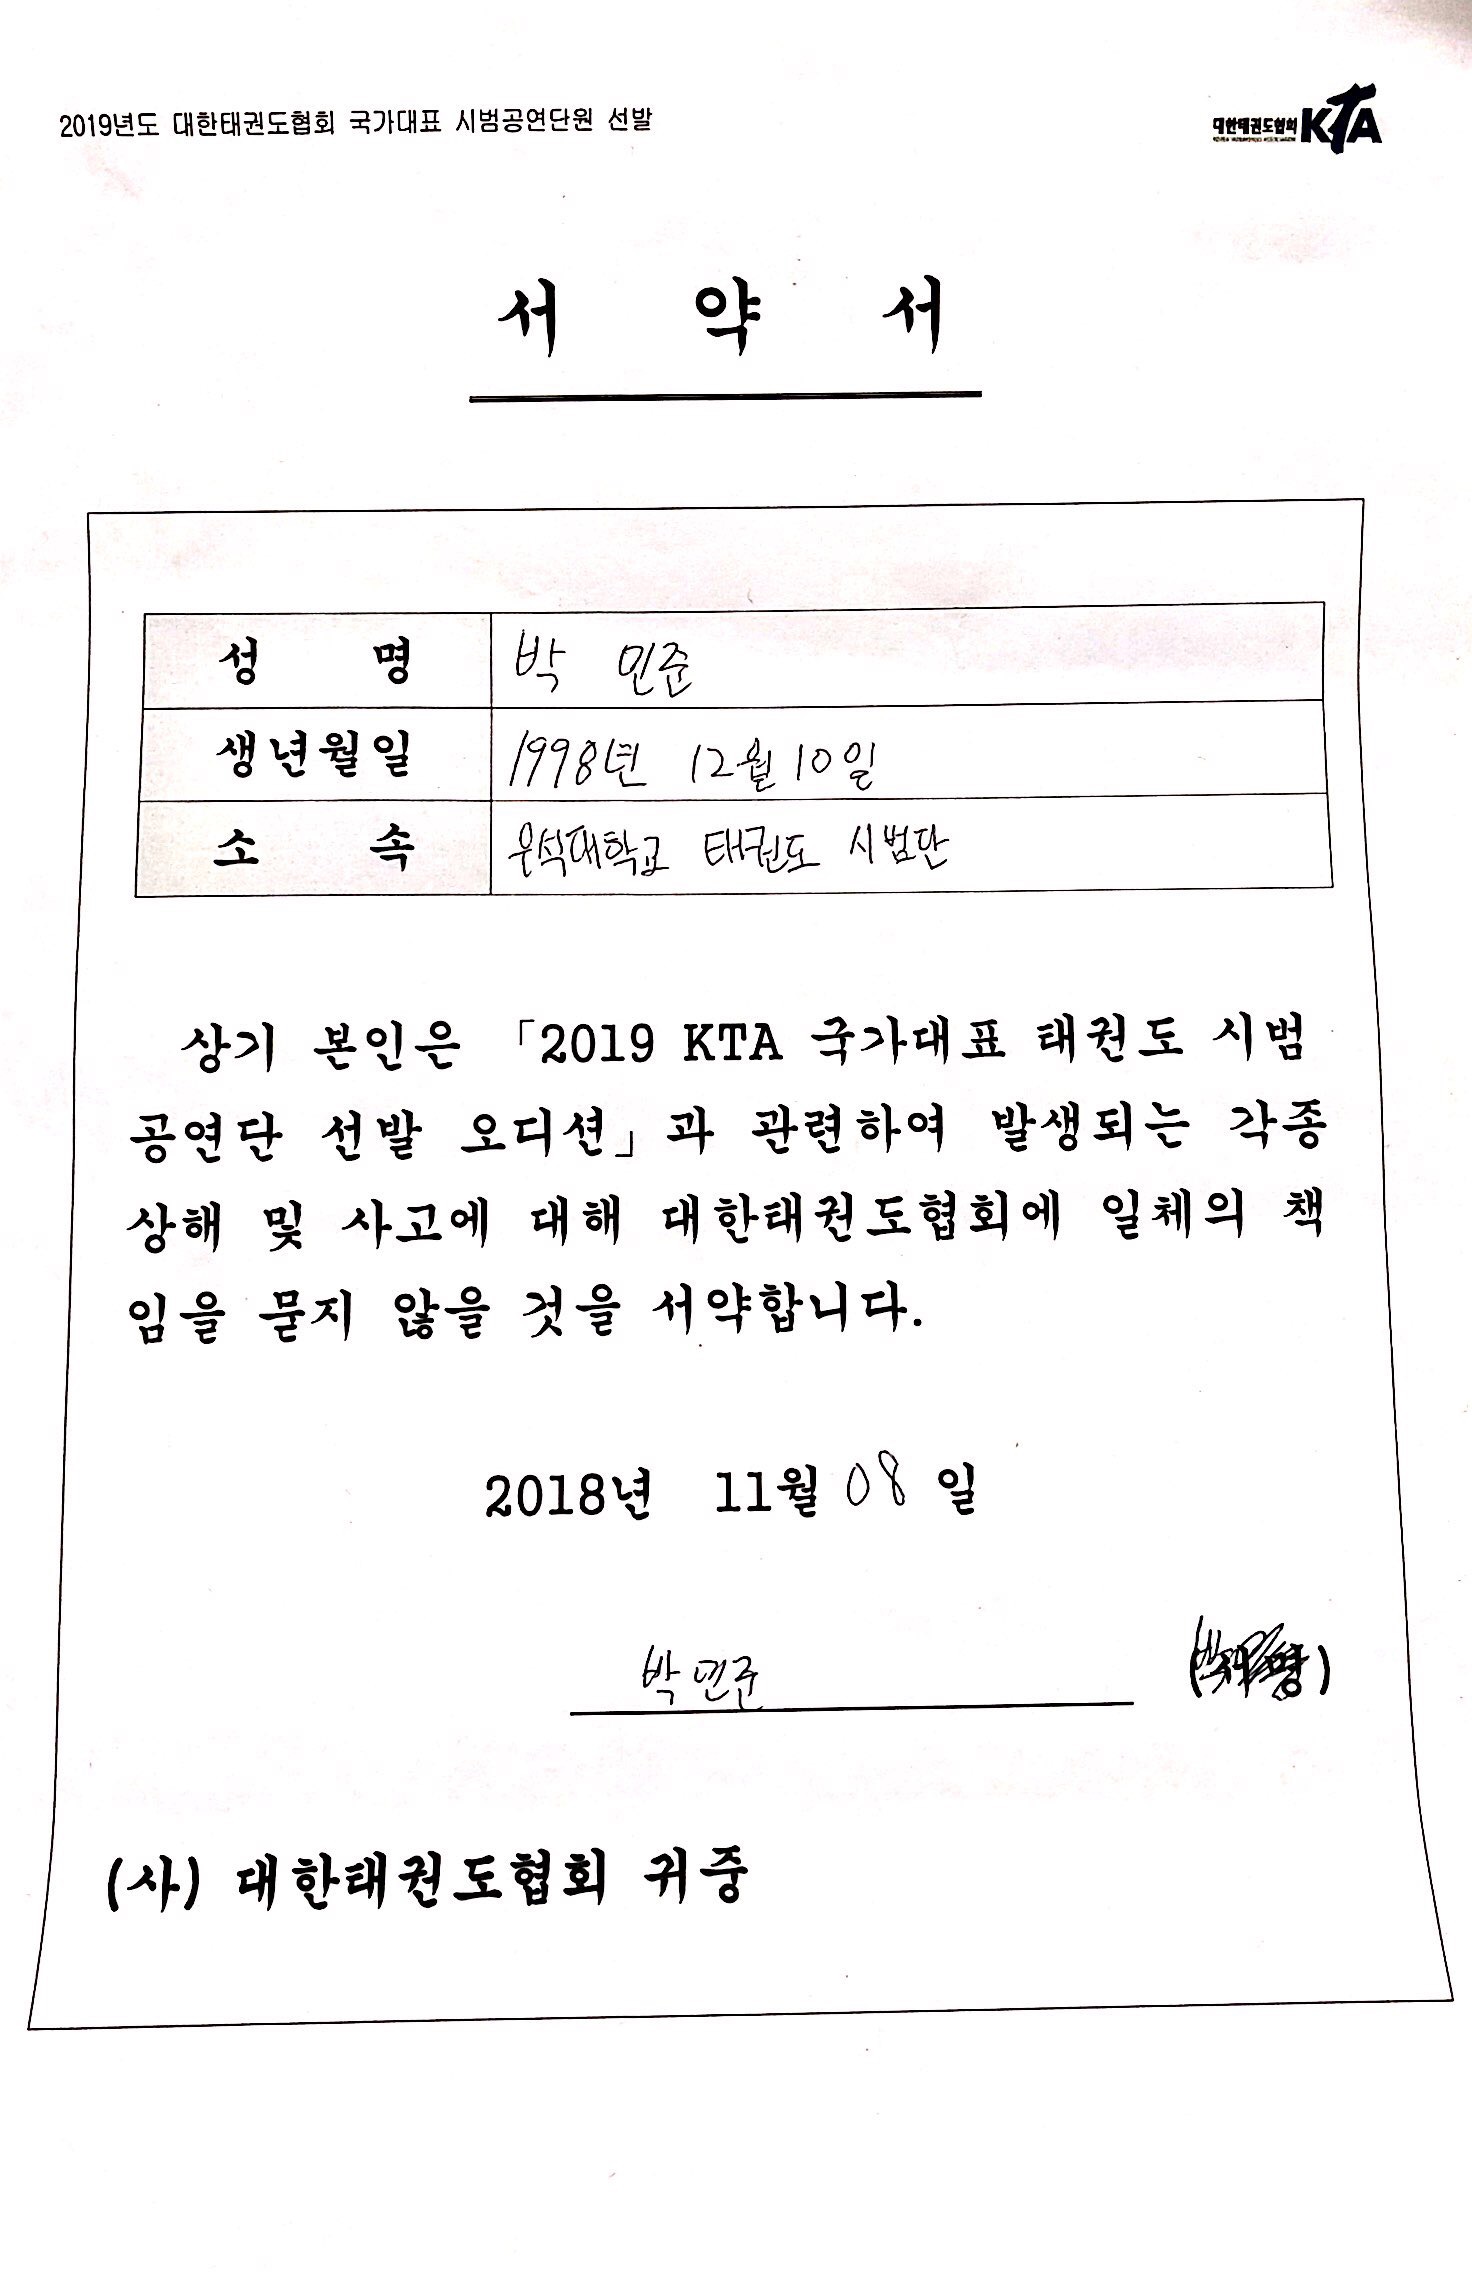 2019년도 대한태권도협회 국가대표 시범공연단원 선발
대한태권도협회 KTA
서 약 서
성 명 박 민준
생년월일 1998년 12월 10일
소 속 우석대학교 태권도 시범단
상기 본인은 「2019 KTA 국가대표 태권도 시범
공연단 선발 오디션」과 관련하여 발생되는 각종
상해 및 사고에 대해 대한태권도협회에 일체의 책
임을 묻지 않을 것을 서약합니다.
2018년 11월 08 일
박 민준 (서명)
(사) 대한태권도협회 귀중